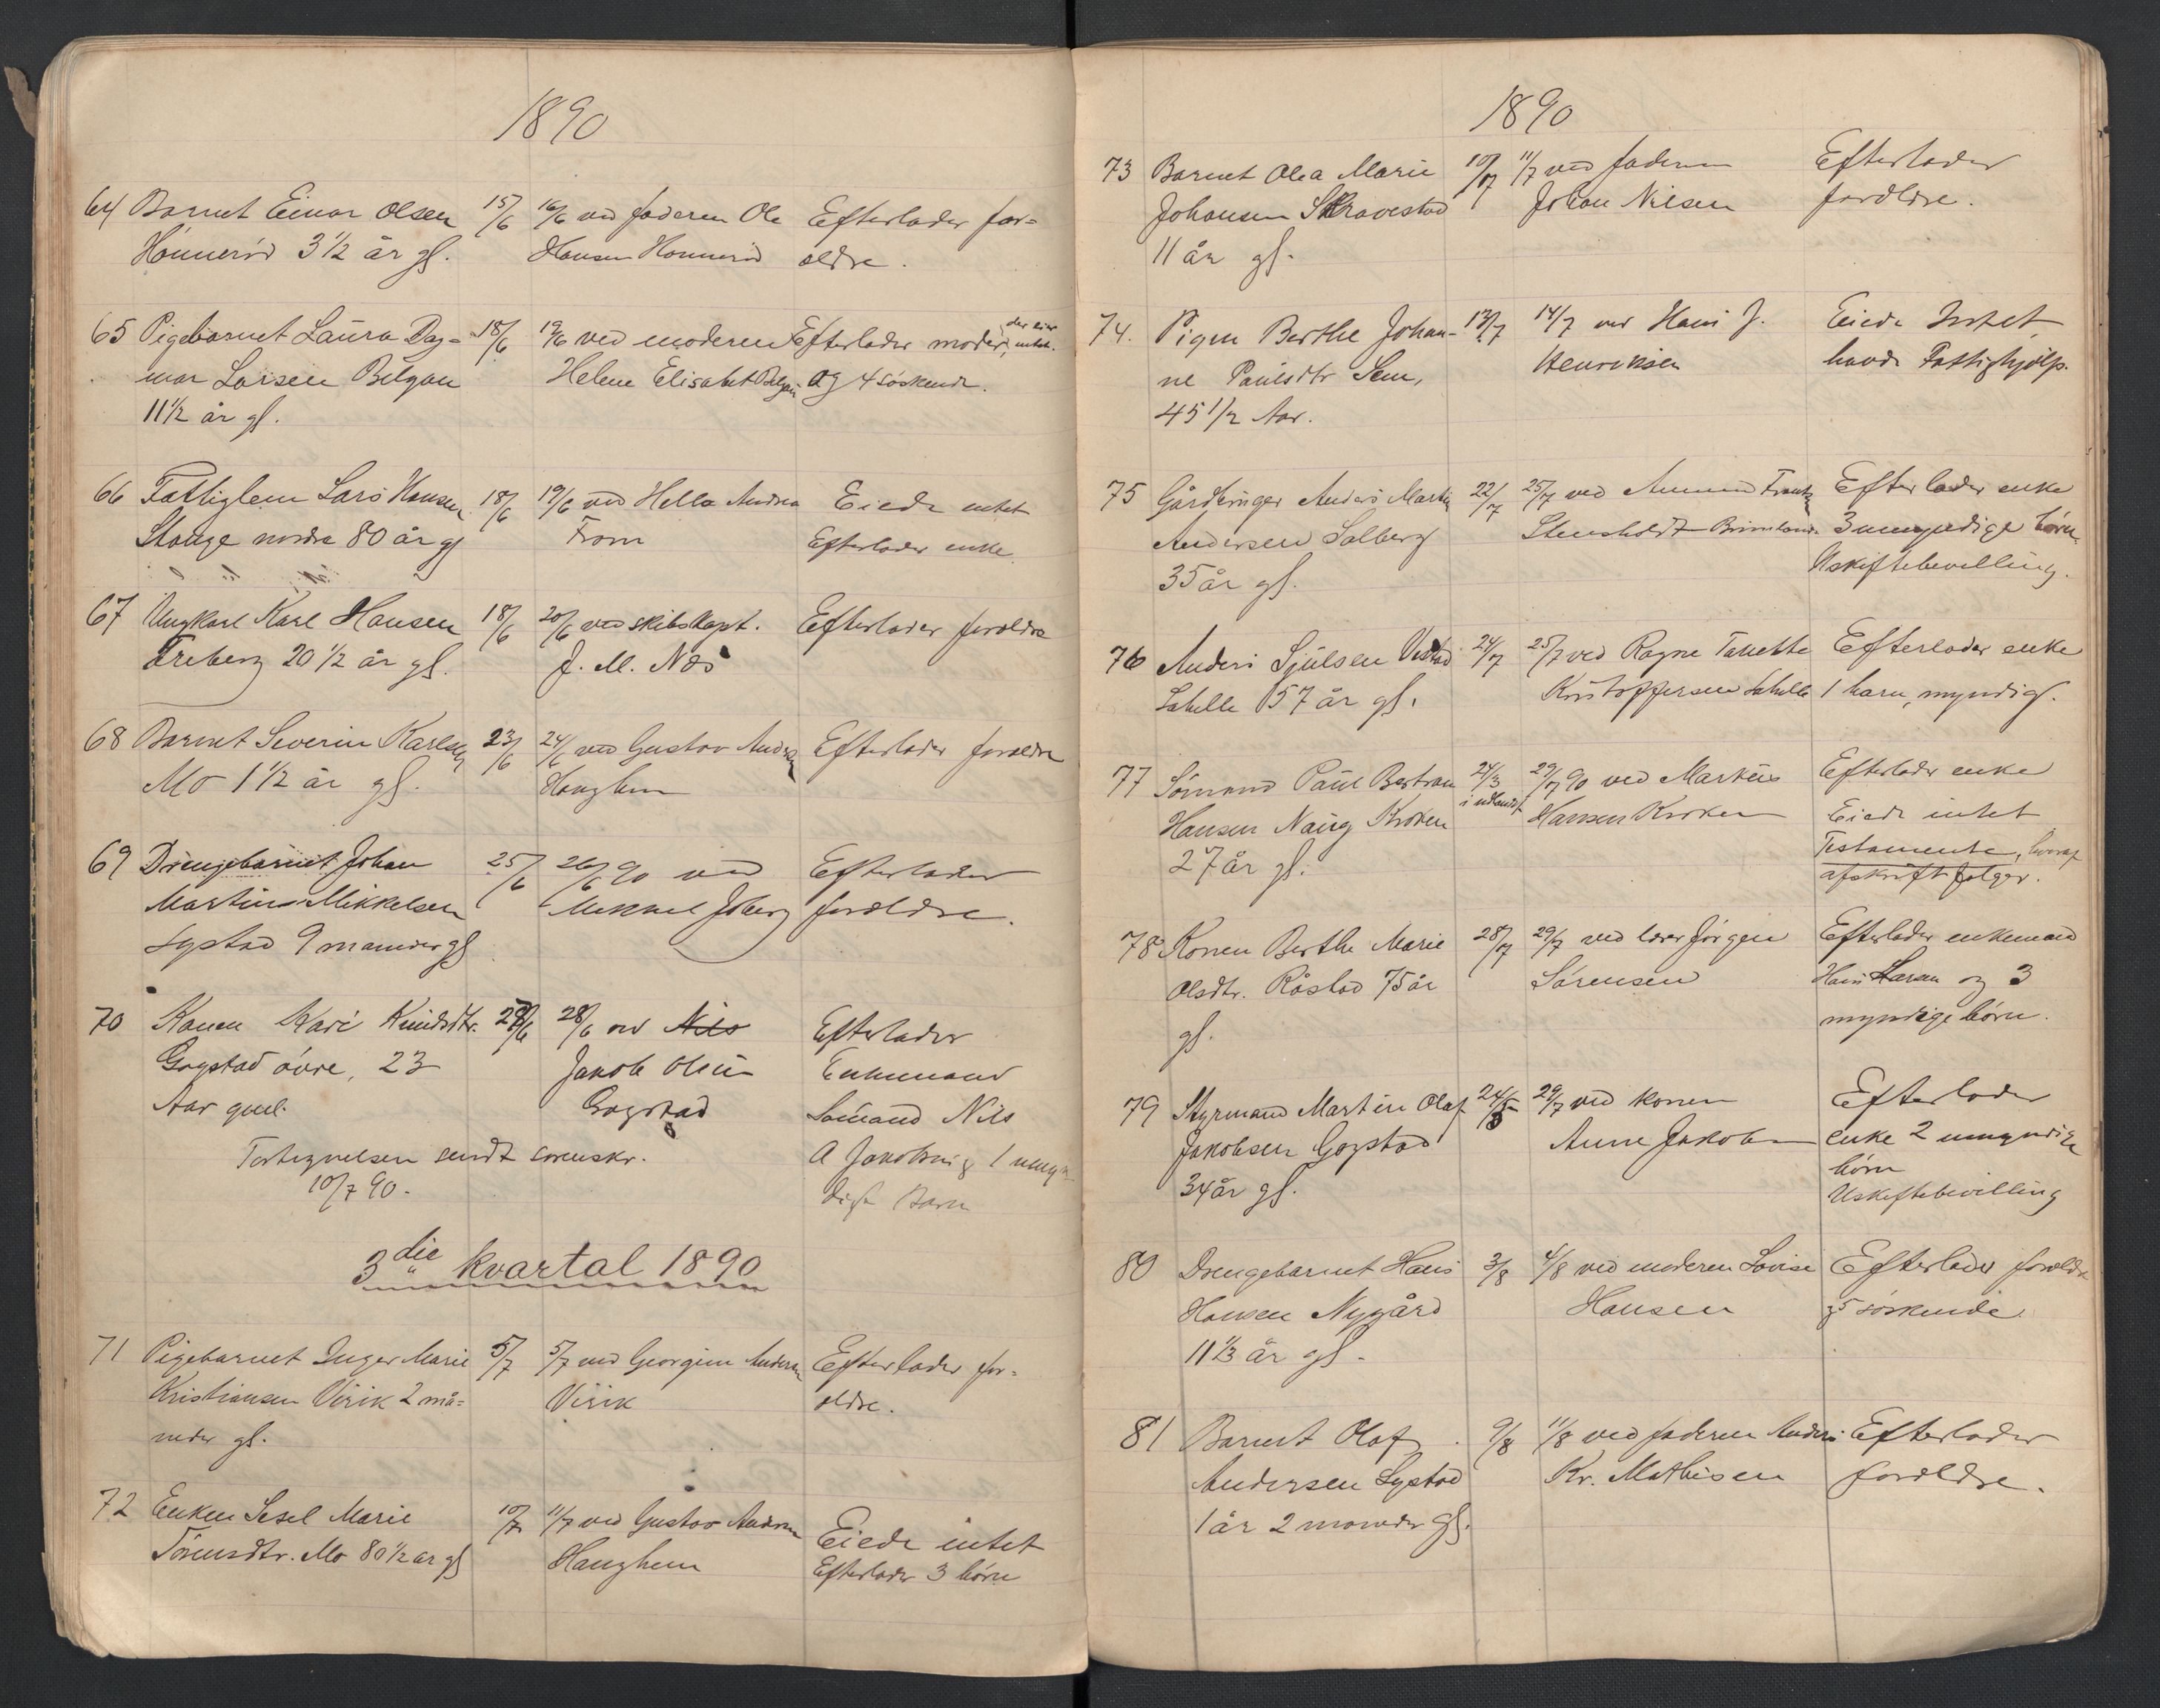 1890
64 Barnet Einar Olsen 15/6 16/6 ved faderen Ole Efterlader for=
Hönneröd 3 1/2 år gl. Hansen Hönneröd ældre.
65 Pigebarnet Laura Dag= 18/6 19/6 ved moderen Efterlader moder, der eier intet.
mar Larsen Bılgan Helene Elisabet og 4 söskende.
11 1/2 år gl.
66 Fattiglem Lars Hansen 18/6 19/6 ved Hella Andrea Eiede intet
Stange nordre 80 år gl From Efterlader enke
67 Ungkarl Karl Hansen 18/6 20/6 ved skibskapt. Efterlader forældre
Freberg 20 1/2 år gl. J. M. Næs
68 Barnet Severin Karlsen 23/6 24/6 ved Gustav Andersen Efterlader forældre
Mo 1 1/2 år gl. Haughem
69 Drengebarnet Johan 25/6 26/6 90 ved Efterlader
Martin Mikkelsen Mikkel forældre.
Lystad 9 maaneder gl
70 Konen Kari Knudsdtr. 27/6 28/6 ved Nils Efterlader
Gogstad övre, 23 Jakob Olsen Enkemand
Aar gml. Gogstad Sömand Nils
Fortegnelsen sendt sorenskr. A Jakobsen & 1 umyn
10/7 90. digt Barn
3die kvartal 1890
71 Pigebarnet Inger Marie 5/7 5/7 ved Georgine Andersen Efterlader for=
Kristiansen Virik 2 må= Virik ældre.
neder gl.
72 Enken Sesel Marie 10/7 11/7 ved Gustav Andersen Eiede intet
Törrisdtr. Mo 80 1/2 år gl Haughem Efterlader 3 börn
1890
73 Barnet Olea Marie 10/7 11/7 ved faderen Efterlader
Johansen Skravestad Johan Nilsen forældre.
11 år gl.
74. Pigen Berthe Johan- 13/7 14/7 ved Hans J. Eiede Intet
ne Paulsdtr Sem, Henriksen havde Fattighjælp.
45 1/2 Aar.
75 Gårdbruger Anders Martin 22/7 25/7 ved Amund Efterlader enke
Andersen Solberg Stensholdt 3 umyndige börn.
35 år gl. Uskiftebevilling.
76 Anders Sjulsen Vestad 24/7 25/7 ved Ragne Tanette Efterlader enke
Lahelle 57 år gl. Kristoffersen Lahelle 1 barn, myndig.
77 Sömand Paul Bertran 24/3 29/7 90 ved Markus Efterlader enke
i udlandet
Hansen Naug Kroken Hansen Kroken Eiede intet
27 år gl. Testamente, hvoraf
afskrift fölger.
78 Konen Berthe Marie 28/7 29/7 ved lærer Jörgen Efterlader enkemand
Olsdtr. Råstad 75 år Sörensen Hans Larsen og 3
gl. myndige börn.
79 Styrmand Martin Olaf 24/5 29/7 ved konen Efterlader
Jakobsen Gogstad Anne Jakobsen enke 2 umyndige
34 år gl. börn
Uskiftebevilling
80 Drengebarnet Hans 3/8 4/8 ved moderen Lovise Efterlader forældre
Hansen Nygård Hansen og 5 söskende
11 1/3 år gl.
81 Barnet Olaf 9/8 11/8 ved faderen Anders Efterlader
Andersen Lystad Kr. Mathisen forældre.
1 år 2 maaneder gl.